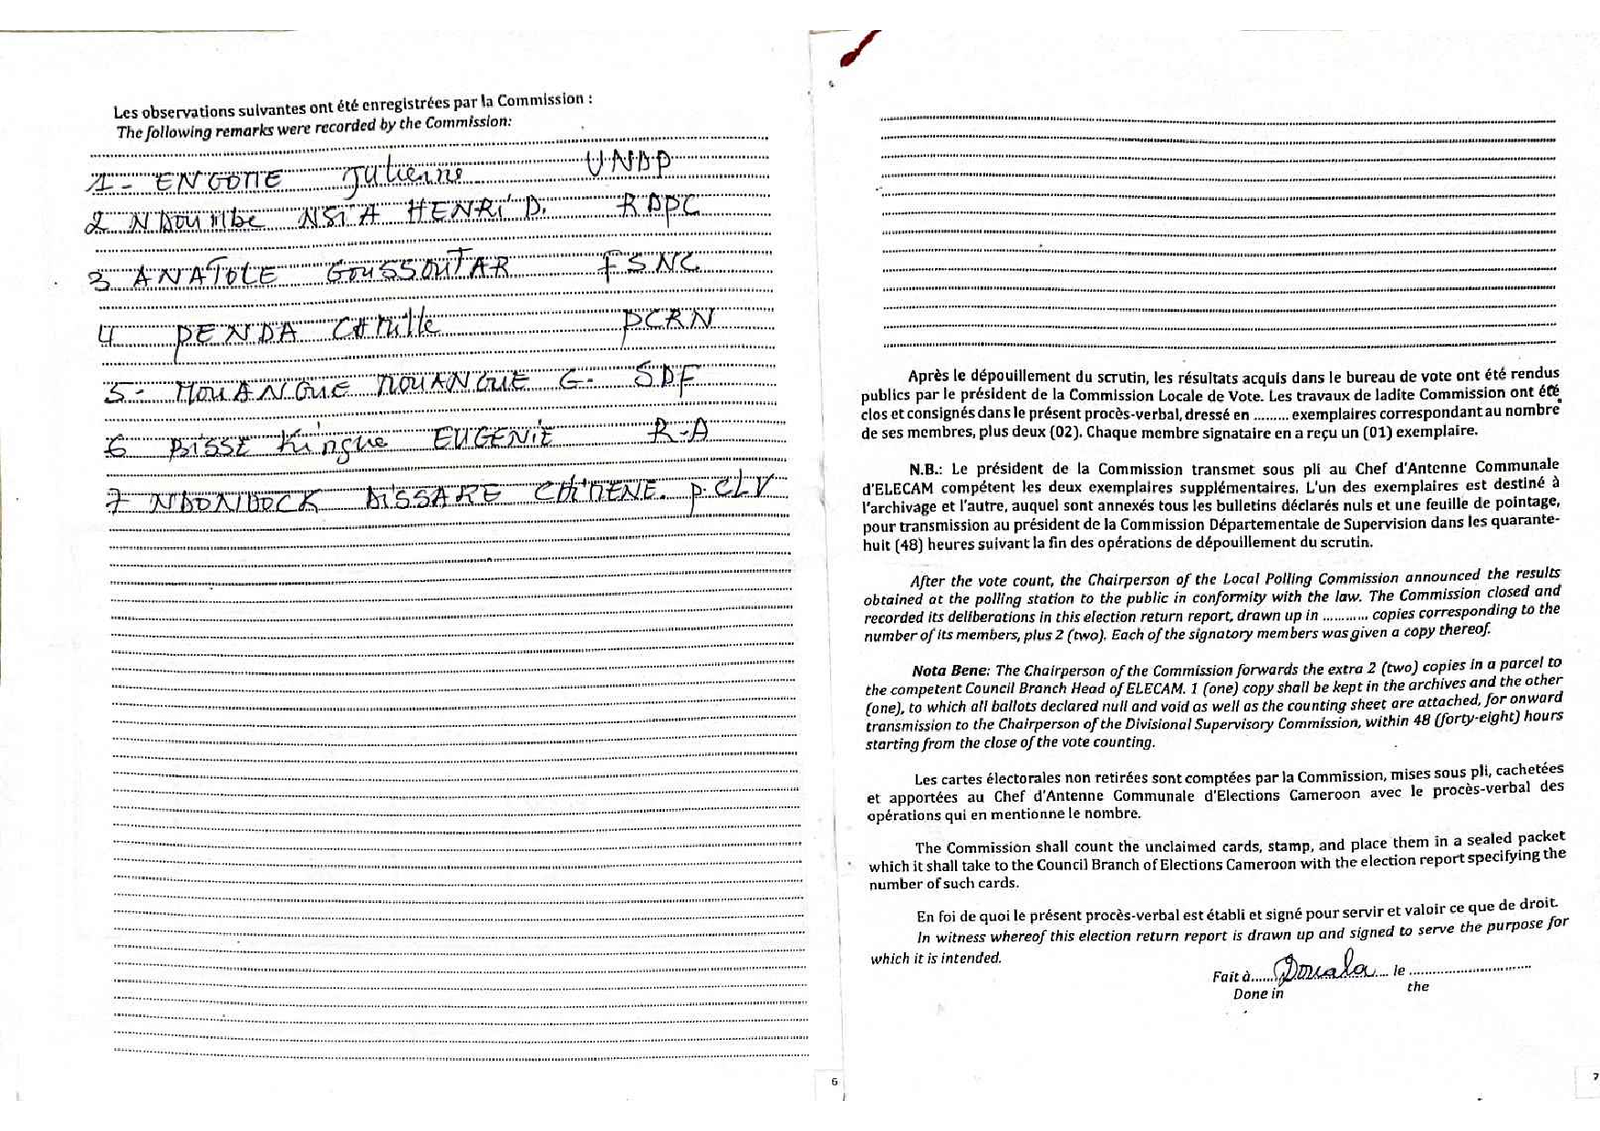 Les observations suivantes ont été enregistrées par la Commission :
The following remarks were recorded by the Commission:
1- ENGOME Julienne UNDP
2 NDoumbe NSIA HENRI D. RDPC
3 ANATOLE GOUSSOUTAR FSNC
4 PENDA CAmille PCRN
5- MOUANGUE MOUANGUE G. SDF
6 BISSE Kingue EUGENIE R-A
7 PCLV
6
Après le dépouillement du scrutin, les résultats acquis dans le bureau de vote ont été rendus
publics par le président de la Commission Locale de Vote. Les travaux de ladite Commission ont été
clos et consignés dans le présent procès-verbal, dressé en ......... exemplaires correspondant au nombre
de ses membres, plus deux (02). Chaque membre signataire en a reçu un (01) exemplaire.
N.B.: Le président de la Commission transmet sous pli au Chef d'Antenne Communale
d'ELECAM compétent les deux exemplaires supplémentaires. L'un des exemplaires est destiné à
l'archivage et l'autre, auquel sont annexés tous les bulletins déclarés nuls et une feuille de pointage,
pour transmission au président de la Commission Départementale de Supervision dans les quarante-
huit (48) heures suivant la fin des opérations de dépouillement du scrutin.
After the vote count, the Chairperson of the Local Polling Commission announced the results
obtained at the polling station to the public in conformity with the law. The Commission closed and
recorded its deliberations in this election return report, drawn up in ........... copies corresponding to the
number of its members, plus 2 (two). Each of the signatory members was given a copy thereof.
Nota Bene: The Chairperson of the Commission forwards the extra 2 (two) copies in a parcel to
the competent Council Branch Head of ELECAM. 1 (one) copy shall be kept in the archives and the other
(one), to which all ballots declared null and void as well as the counting sheet are attached, for onward
transmission to the Chairperson of the Divisional Supervisory Commission, within 48 (forty-eight) hours
starting from the close of the vote counting.
Les cartes électorales non retirées sont comptées par la Commission, mises sous pli, cachetées
et apportées au Chef d'Antenne Communale d'Elections Cameroon avec le procès-verbal des
opérations qui en mentionne le nombre.
The Commission shall count the unclaimed cards, stamp, and place them in a sealed packet
which it shall take to the Council Branch of Elections Cameroon with the election report specifying the
number of such cards.
En foi de quoi le présent procès-verbal est établi et signé pour servir et valoir ce que de droit.
In witness whereof this election return report is drawn up and signed to serve the purpose for
which it is intended.
Fait à...... Douala .... le ..............................
Done in the
7